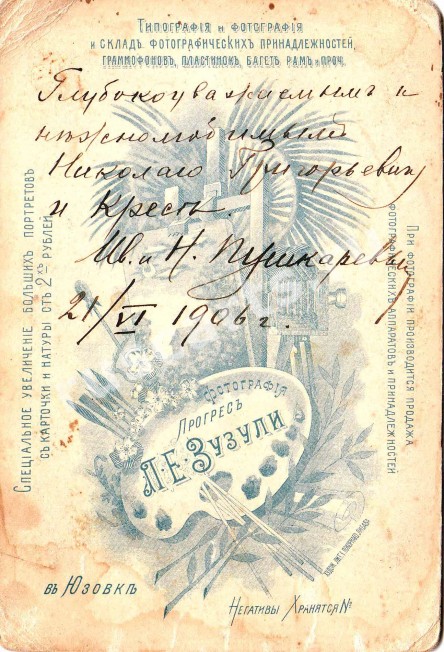 Типографія и фотографія
и складъ фотографическихъ принадлежностей,
граммофоновъ, пластинокъ, багетъ, рамъ и проч.
Глубокоуважаемымъ и
нѣжнолюбимымъ
Николаю Григорьевичу
и Крестъ.
Ив. и Н. Пушкаревы
21/VI 1906 г.
Спеціальное увеличеніе большихъ портретовъ
съ карточки и натуры отъ 2хъ рублей
При фотографіи производится продажа
фотографическихъ аппаратовъ и принадлежностей
Фотографія
Прогресъ
Л.Е. Зузули
въ Юзовкѣ
Негативы хранятся №